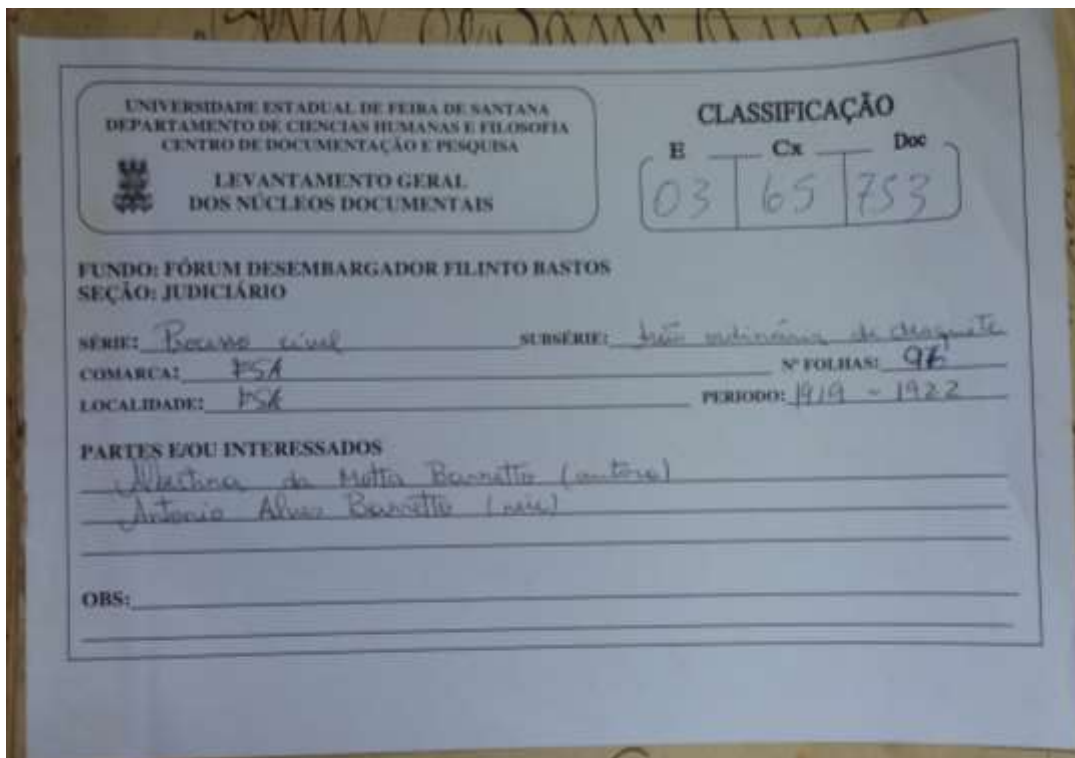 UNIVERSIDADE ESTADUAL DE FEIRA DE SANTANA
DEPARTAMENTO DE CIENCIAS HUMANAS E FILOSOFIA
CENTRO DE DOCUMENTAÇÃO E PESQUISA
LEVANTAMENTO GERAL
DOS NÚCLEOS DOCUMENTAIS
CLASSIFICAÇÃO
E Cx Doc
03 65 753
FUNDO: FÓRUM DESEMBARGADOR FILINTO BASTOS
SEÇÃO: JUDICIÁRIO
SÉRIE: Processo cível SUBSÉRIE: Ação ordinária de desquite
COMARCA: FSA Nº FOLHAS: 96
LOCALIDADE: FSA PERIODO: 1919 - 1922
PARTES E/OU INTERESSADOS
Albertina da Motta Barretto (autora)
Antonio Alves Barretto (réu)
OBS: